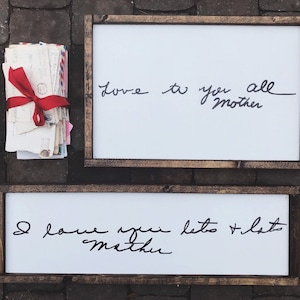 Love to you all
Mother
I love you lots + lots
Mother